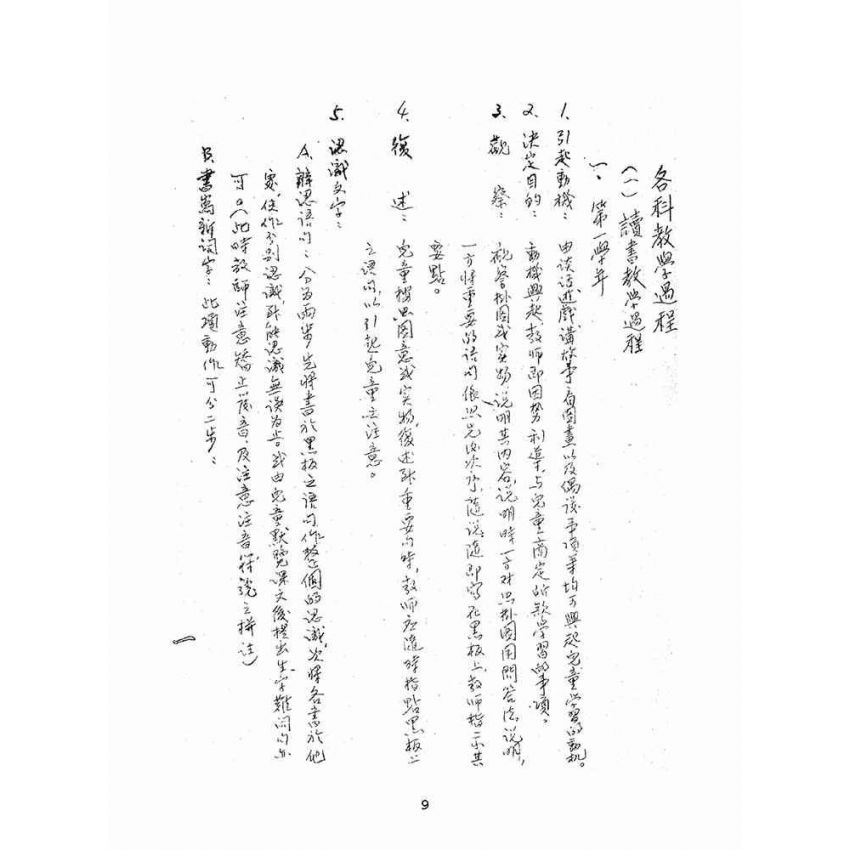 各科教學過程
(一) 讀書教學過程
一、第一學年
1. 引起動機：由談話遊戲講故事看圖畫以及偶該事項等均可興起兒童學習的動机。
2. 決定目的：動機興起教師即因勢利導，与兒童商定所欲學習的事項。
3. 觀察：觀察掛圖或实物，说明其内容，说明時一方对照掛圖用問答法说明，
一方將重要的语句依照先後次序，隨说隨即寫在黑板上，教師指示其
要點。
4. 復述：兒童按照圖意或实物，復述到重要句時，教師应隨時指點黑板上
之语句，以引起兒童之注意。
5. 認識文字：
A. 辨認语句：分为兩步先將書於黑板之语句作整個的認識，次將各書於他
處，使作分别認識，到能認識無误为止或由兒童默覽课文後提出生字難词句亦
可。(此時教師注意矯正發音，及注意注音符號之拼注)
B. 書寫新词字：此項動作可分二步：
一
9